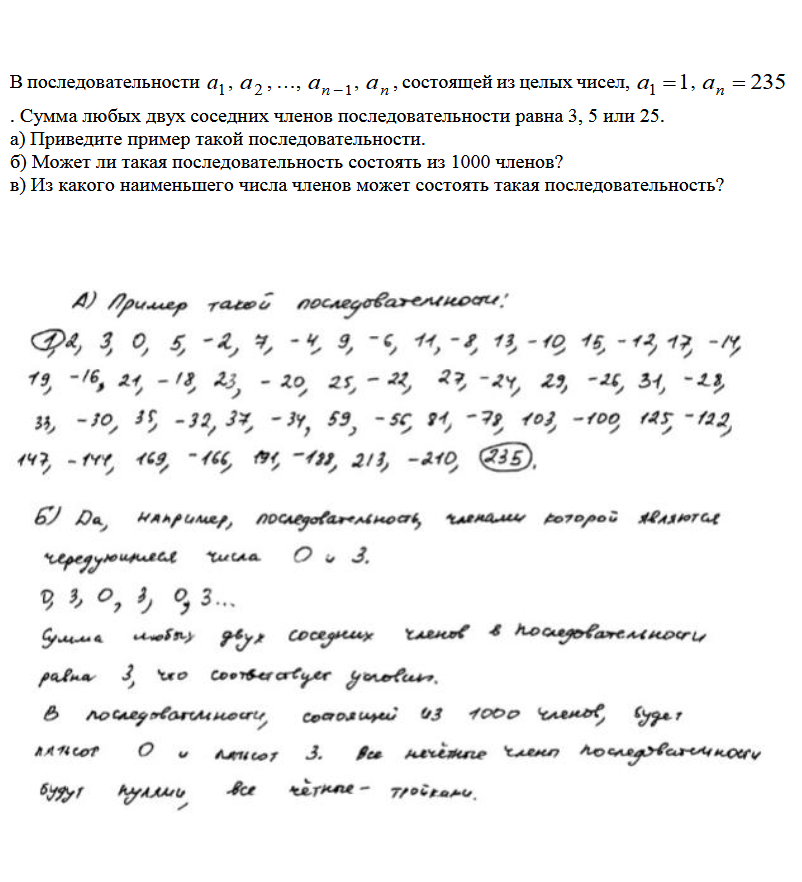 В последовательности a₁, a₂, ..., aₙ₋₁, aₙ, состоящей из целых чисел, a₁ = 1, aₙ = 235
. Сумма любых двух соседних членов последовательности равна 3, 5 или 25.
а) Приведите пример такой последовательности.
б) Может ли такая последовательность состоять из 1000 членов?
в) Из какого наименьшего числа членов может состоять такая последовательность?
А) Пример такой последовательности:
1, 2, 3, 0, 5, -2, 7, -4, 9, -6, 11, -8, 13, -10, 15, -12, 17, -14,
19, -16, 21, -18, 23, -20, 25, -22, 27, -24, 29, -26, 31, -28,
33, -30, 35, -32, 37, -34, 59, -56, 81, -78, 103, -100, 125, -122,
147, -144, 169, -166, 191, -188, 213, -210, 235.
Б) Да, например, последовательность, членами которой являются
чередующиеся числа 0 и 3.
0, 3, 0, 3, 0, 3...
Сумма любых двух соседних членов в последовательности
равна 3, что соответствует условию.
В последовательности, состоящей из 1000 членов, будет
пятьсот 0 и пятьсот 3. Все нечётные члены последовательности
будут нулями, все чётные - тройками.